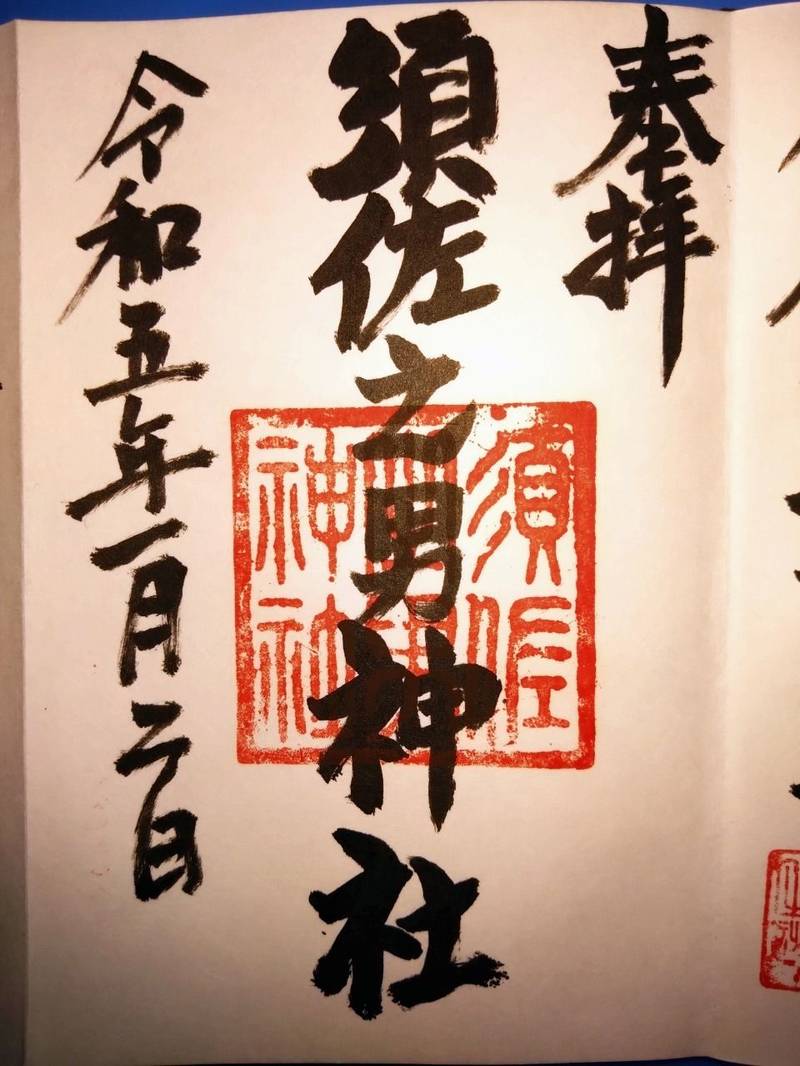 奉拝
須佐之男神社
令和五年一月二日
須佐
神社